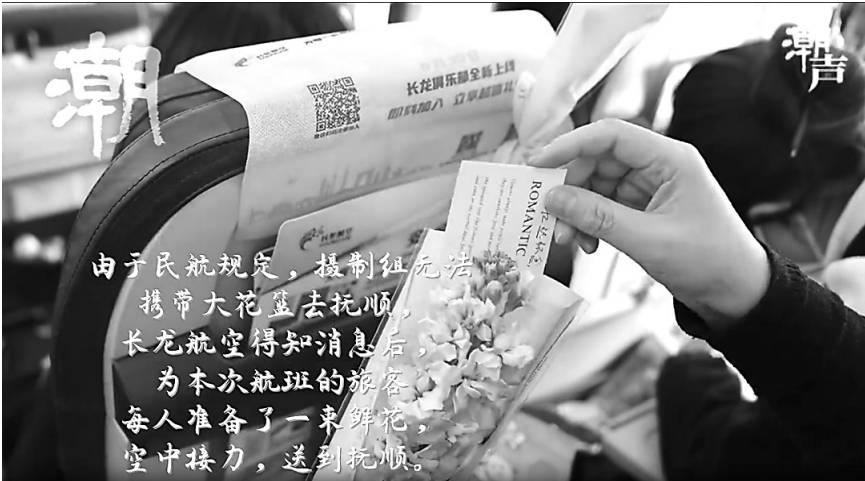 潮
潮声
长龙俱乐部全新上线
即刻加入 立享超值礼
长龙航空
ROMANTIC
由于民航规定，摄制组无法
携带大花篮去抚顺，
长龙航空得知消息后，
为本次航班的旅客
每人准备了一束鲜花，
空中接力，送到抚顺。